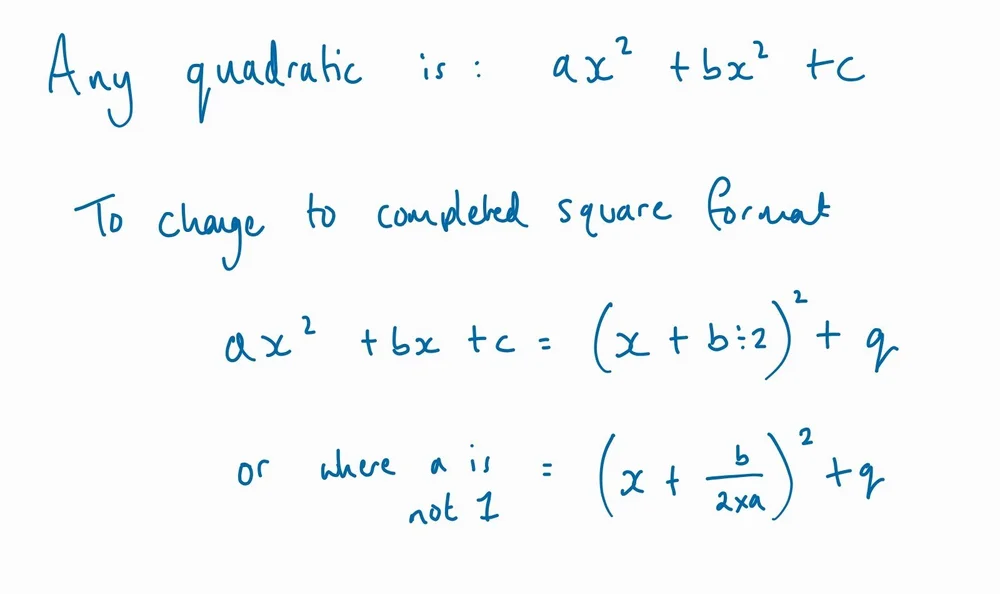 Any quadratic is : ax² + bx² + c
To change to completed square format
ax² + bx + c = (x + b÷2)² + q
or where a is not 1 = (x + b/2xa)² + q